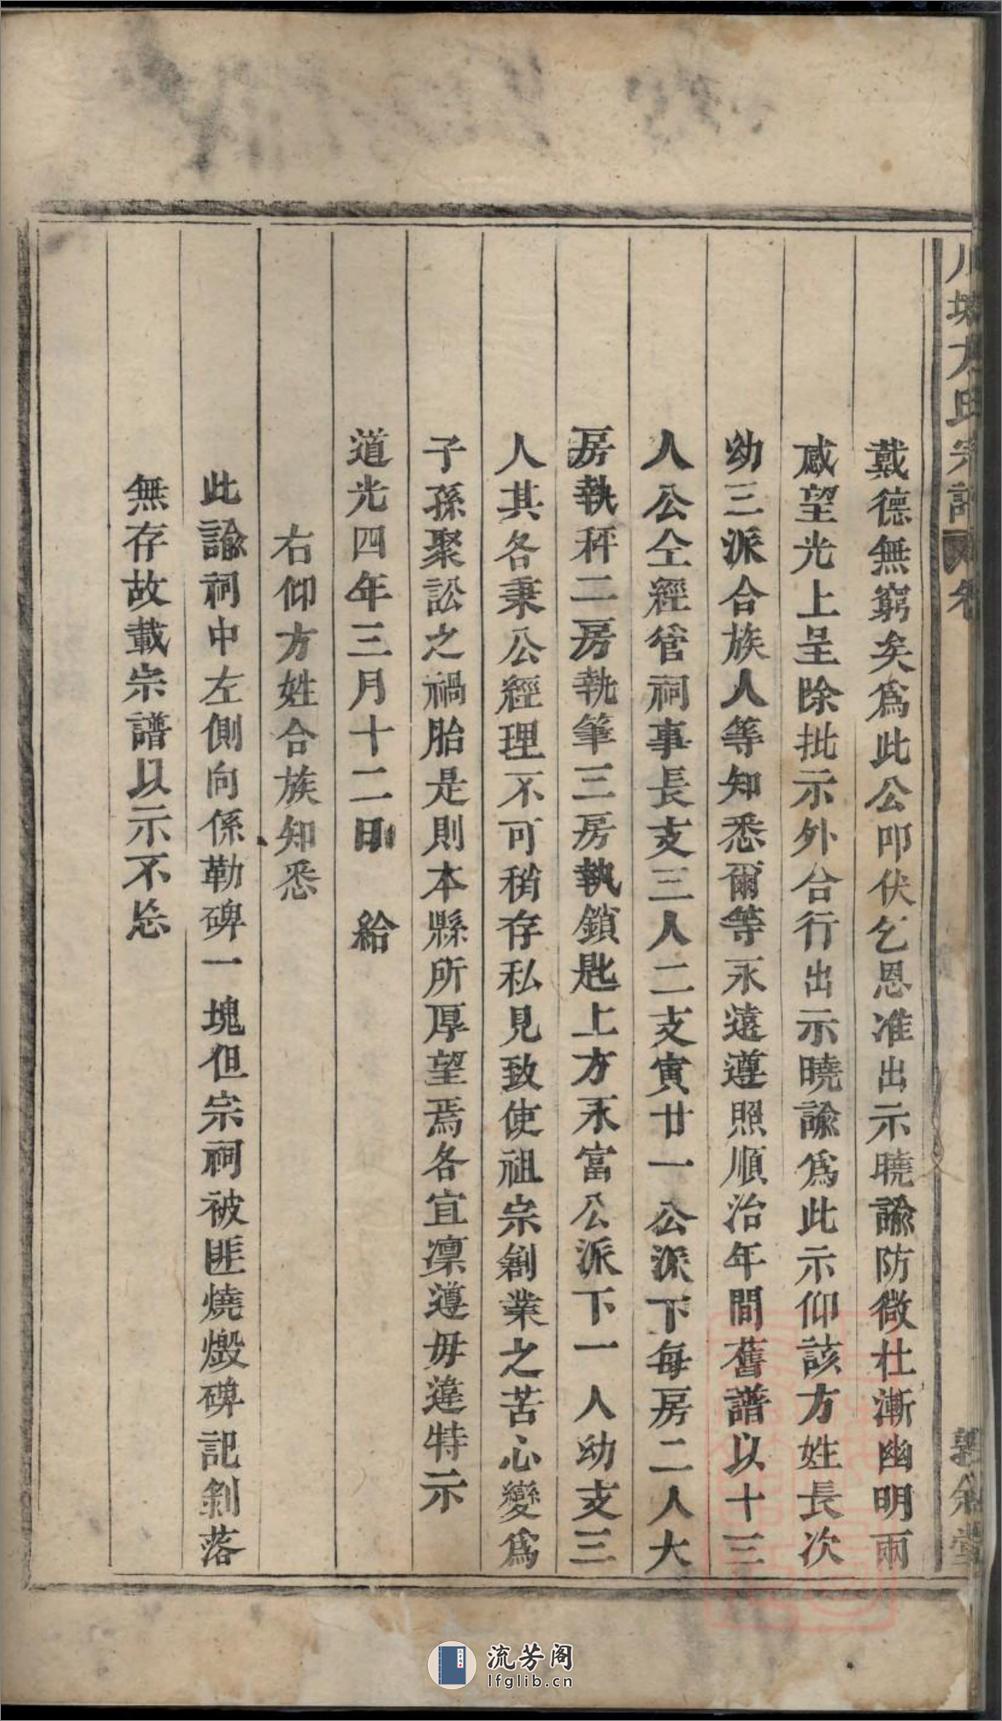 戴德無窮矣爲此公叩伏乞恩准出示曉諭防微杜漸幽明兩
感望光上呈除批示外合行出示曉諭爲此示仰該方姓長次
幼三派合族人等知悉爾等永遠遵照順治年間舊譜以十三
人公仝經管祠事長支三人二支寅廿一公派下每房二人大
房執秤二房執筆三房執鎖匙上方永富公派下一人幼支三
人其各秉公經理不可稍存私見致使祖宗創業之苦心變爲
子孫聚訟之禍胎是則本縣所厚望焉各宜凛遵毋違特示
道光四年三月十二日 給
右仰方姓合族知悉
此諭祠中左側向係勒碑一塊但宗祠被匪燒燬碑記剝落
無存故載宗譜以示不忘
方氏宗譜 卷
堂
流芳阁
lfglib.cn